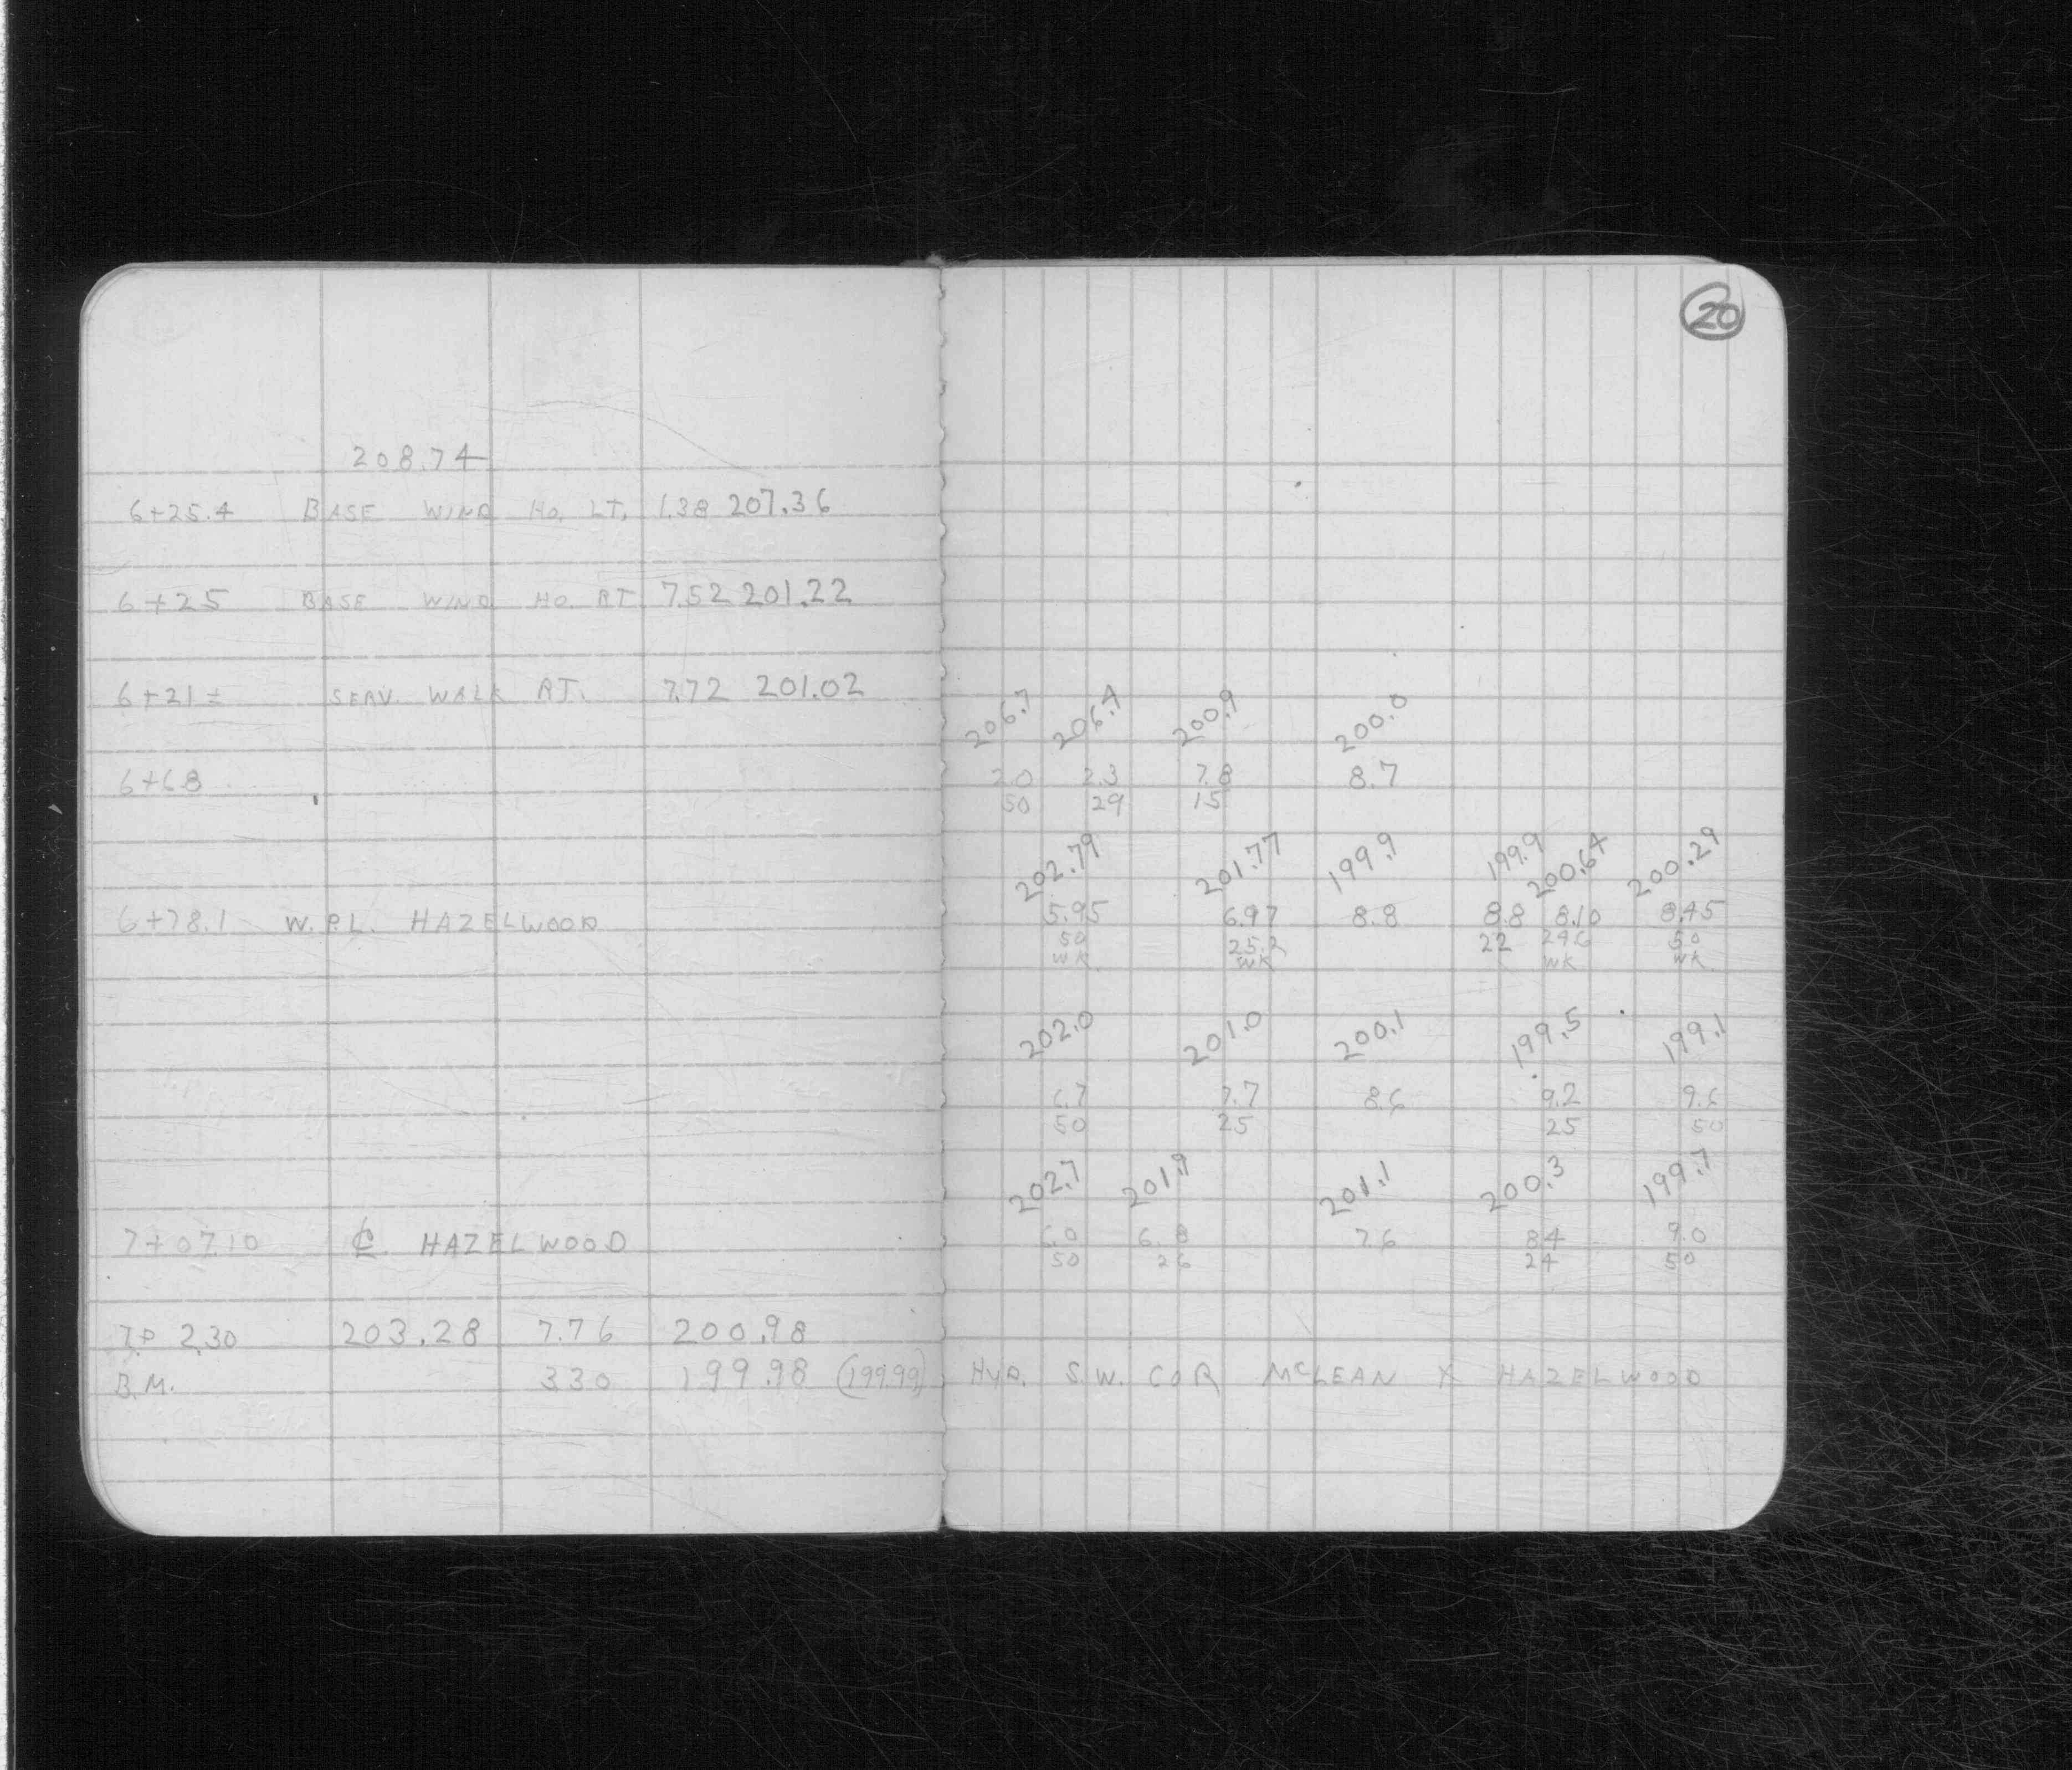 20
208.74
6+25.4 BASE WIND HO. LT. 1.38 207.36
6+25 BASE WIND HO. RT 7.52 201.22
6+21± SERV. WALK RT. 7.72 201.02
206.7 206.4 200.9 200.0
6+68 2.0 2.3 7.8 8.7
50 29 15
202.79 201.77 199.9 199.9 200.64 200.29
6+78.1 W.P.L. HAZELWOOD 5.95 6.97 8.8 8.8 8.10 8.45
50 25.2 22 29.6 50
WK WK WK WK
202.0 201.0 200.1 199.5 199.1
6.7 7.7 8.6 9.2 9.6
50 25 25 50
202.7 201.9 201.1 200.3 199.7
7+07.10 ₵ HAZELWOOD 6.0 6.8 7.6 8.4 9.0
50 26 24 50
T.P 2.30 203.28 7.76 200.98
B.M. 3.30 199.98 (199.99) HYD. S.W. COR MCLEAN X HAZELWOOD